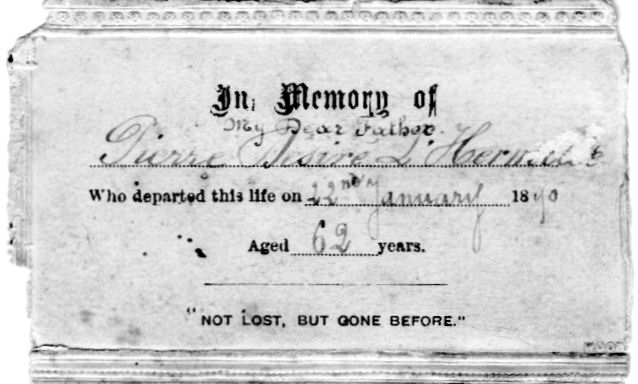 In Memory of
My Dear Father.
Pierre Desiré L'
Who departed this life on 22nd January 1890
Aged 62 years.
"NOT LOST, BUT GONE BEFORE."